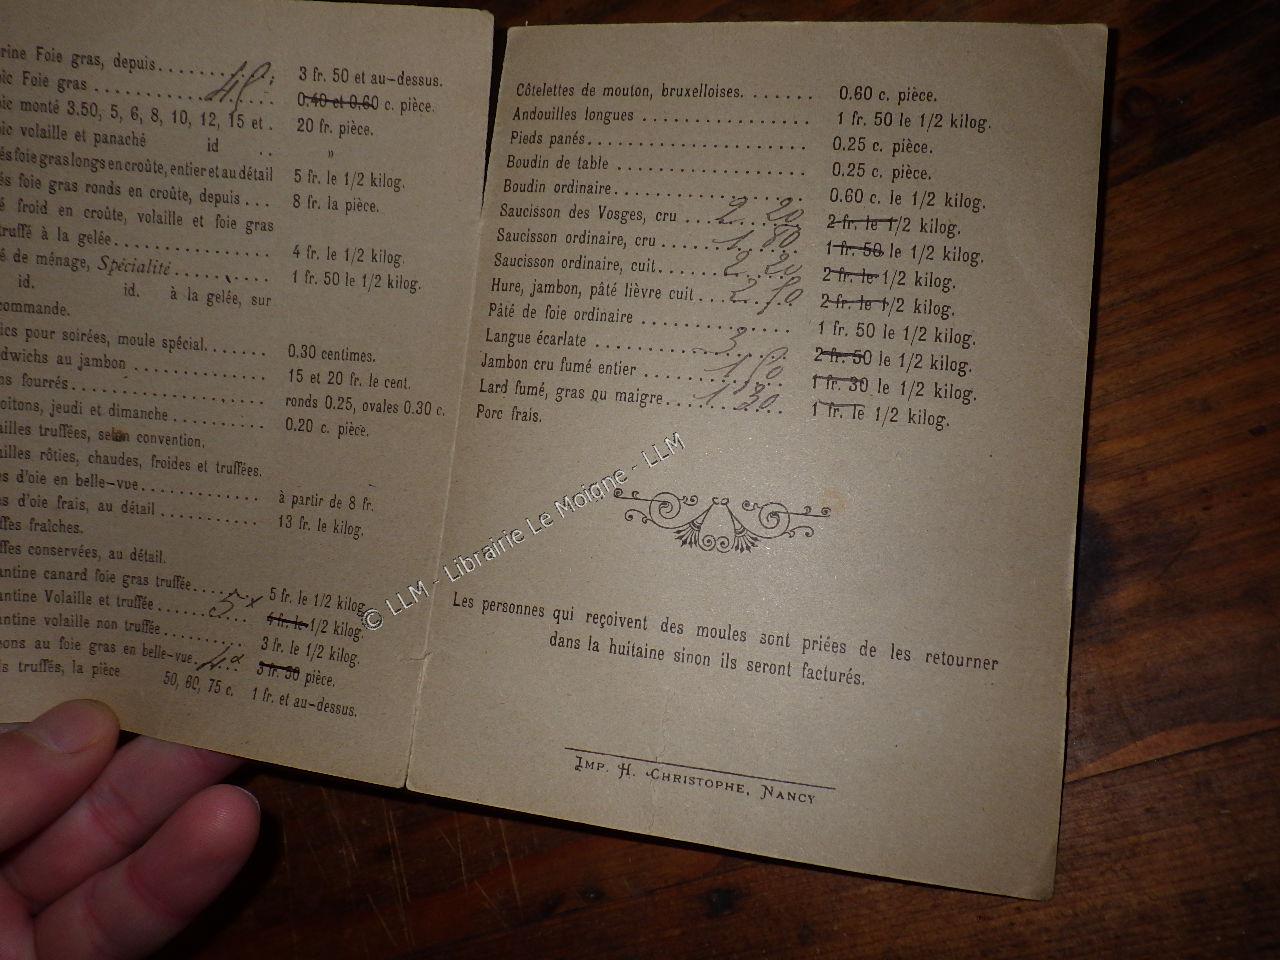 rine Foie gras, depuis........ 3 fr. 50 et au-dessus.
ic Foie gras ............ 0.40 et 0.60 c. pièce.
ic monté 3.50, 5, 6, 8, 10, 12, 15 et . 20 fr. pièce.
ic volaille et panaché id .. »
és foie gras longs en croûte, entier et au détail 5 fr. le 1/2 kilog.
és foie gras ronds en croûte, depuis ... 8 fr. la pièce.
é froid en croûte, volaille et foie gras
truffé à la gelée.............. 4 fr. le 1/2 kilog.
é de ménage, Spécialité ......... 1 fr. 50 le 1/2 kilog.
id. id. à la gelée, sur
commande.
ics pour soirées, moule spécial....... 0.30 centimes.
dwichs au jambon .............. 15 et 20 fr. le cent.
ns fourrés.................... ronds 0.25, ovales 0.30 c.
oitons, jeudi et dimanche .......... 0.20 c. pièce.
ailles truffées, selon convention.
ailles rôties, chaudes, froides et truffées.
s d'oie en belle-vue............. à partir de 8 fr.
s d'oie frais, au détail ........... 13 fr. le kilog.
ffes fraîches.
ffes conservées, au détail.
antine canard foie gras truffée....... 5 fr. le 1/2 kilog.
antine Volaille et truffée ....... 5 4 fr. le 1/2 kilog.
antine volaille non truffée .......... 3 fr. le 1/2 kilog.
ons au foie gras en belle-vue. 3 fr. 50 pièce.
s truffés, la pièce 50, 60, 75 c. 1 fr. et au-dessus.
Côtelettes de mouton, bruxelloises. ...... 0.60 c. pièce.
Andouilles longues ................ 1 fr. 50 le 1/2 kilog.
Pieds panés..................... 0.25 c. pièce.
Boudin de table .................. 0.25 c. pièce.
Boudin ordinaire................. 0.60 c. le 1/2 kilog.
Saucisson des Vosges, cru ... 2 20 2 fr. le 1/2 kilog.
Saucisson ordinaire, cru ..... 1 80 1 fr. 50 le 1/2 kilog.
Saucisson ordinaire, cuit...... 2 20 2 fr. le 1/2 kilog.
Hure, jambon, pâté lièvre cuit ... 2 50 2 fr. le 1/2 kilog.
Pâté de foie ordinaire ............... 1 fr. 50 le 1/2 kilog.
Langue écarlate .......... 3 2 fr. 50 le 1/2 kilog.
Jambon cru fumé entier ...... 1 50 1 fr. 30 le 1/2 kilog.
Lard fumé, gras ou maigre.... 1 30 1 fr. le 1/2 kilog.
Porc frais.
© LLM - Librairie Le Moigne - LLM
Les personnes qui reçoivent des moules sont priées de les retourner
dans la huitaine sinon ils seront facturés.
Imp. H. Christophe, Nancy